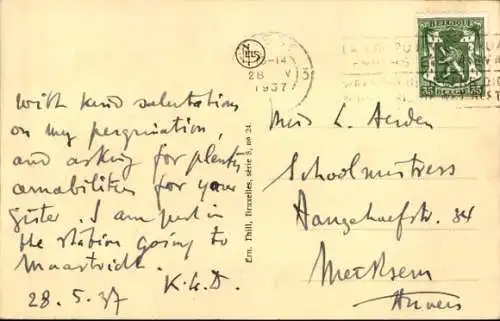 with kind salutations
on my pergrination,
and asking for plenty
amabilities for your
sister. I am just in
the station going to
Maastricht.
K.L.D.
28.5.37
Ern. Thill, Bruxelles, série 3, no 24.
28 V
1937
BELGIQUE
35 BELGIE 35
Miss L. Aerden
Schoolmistress
34
Merksem
Anvers